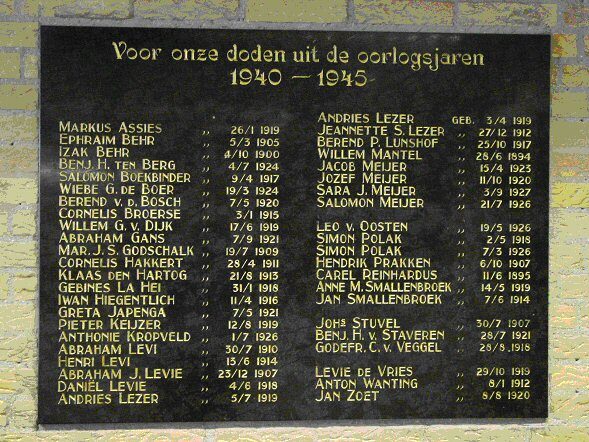 Voor onze doden uit de oorlogsjaren
1940 – 1945
MARKUS ASSIES „ 26/1 1919
EPHRAIM BEHR „ 5/3 1905
IZAK BEHR „ 4/10 1900
BENJ. H. TEN BERG „ 4/7 1924
SALOMON BOEKBINDER „ 9/4 1917
WIEBE G. DE BOER „ 19/3 1924
BEREND V. D. BOSCH „ 7/5 1920
CORNELIS BROERSE „ 3/1 1915
WILLEM G. V. DIJK „ 17/6 1919
ABRAHAM GANS „ 7/9 1921
MAR. J. S. GODSCHALK „ 19/7 1909
CORNELIS HAKKERT „ 28/4 1911
KLAAS DEN HARTOG „ 21/8 1913
GEBINES LA HEI „ 31/1 1918
IWAN HIEGENTLICH „ 11/4 1916
GRETA JAPENGA „ 7/5 1921
PIETER KEIJZER „ 12/8 1919
ANTHONIE KROPVELD „ 1/7 1926
ABRAHAM LEVI „ 30/7 1910
HENRI LEVI „ 13/6 1914
ABRAHAM J. LEVIE „ 23/12 1907
DANIËL LEVIE „ 4/6 1918
ANDRIES LEZER „ 5/7 1919
ANDRIES LEZER GEB. 3/4 1919
JEANNETTE S. LEZER „ 27/12 1912
BEREND P. LUNSHOF „ 25/10 1917
WILLEM MANTEL „ 28/6 1894
JACOB MEIJER „ 15/4 1923
JOZEF MEIJER „ 11/10 1920
SARA J. MEIJER „ 3/9 1927
SALOMON MEIJER „ 21/7 1926
LEO V. OOSTEN „ 19/5 1926
SIMON POLAK „ 2/5 1918
SIMON POLAK „ 7/3 1926
HENDRIK PRAKKEN „ 6/10 1907
CAREL REINHARDUS „ 11/6 1895
ANNE M. SMALLENBROEK „ 14/5 1919
JAN SMALLENBROEK „ 7/6 1914
JOHS STUVEL „ 30/7 1907
BENJ. H. V. STAVEREN „ 28/7 1921
GODEFR. C. V. VEGGEL „ 28/8 1918
LEVIE DE VRIES „ 29/10 1919
ANTON WANTING „ 8/1 1912
JAN ZOET „ 8/8 1920